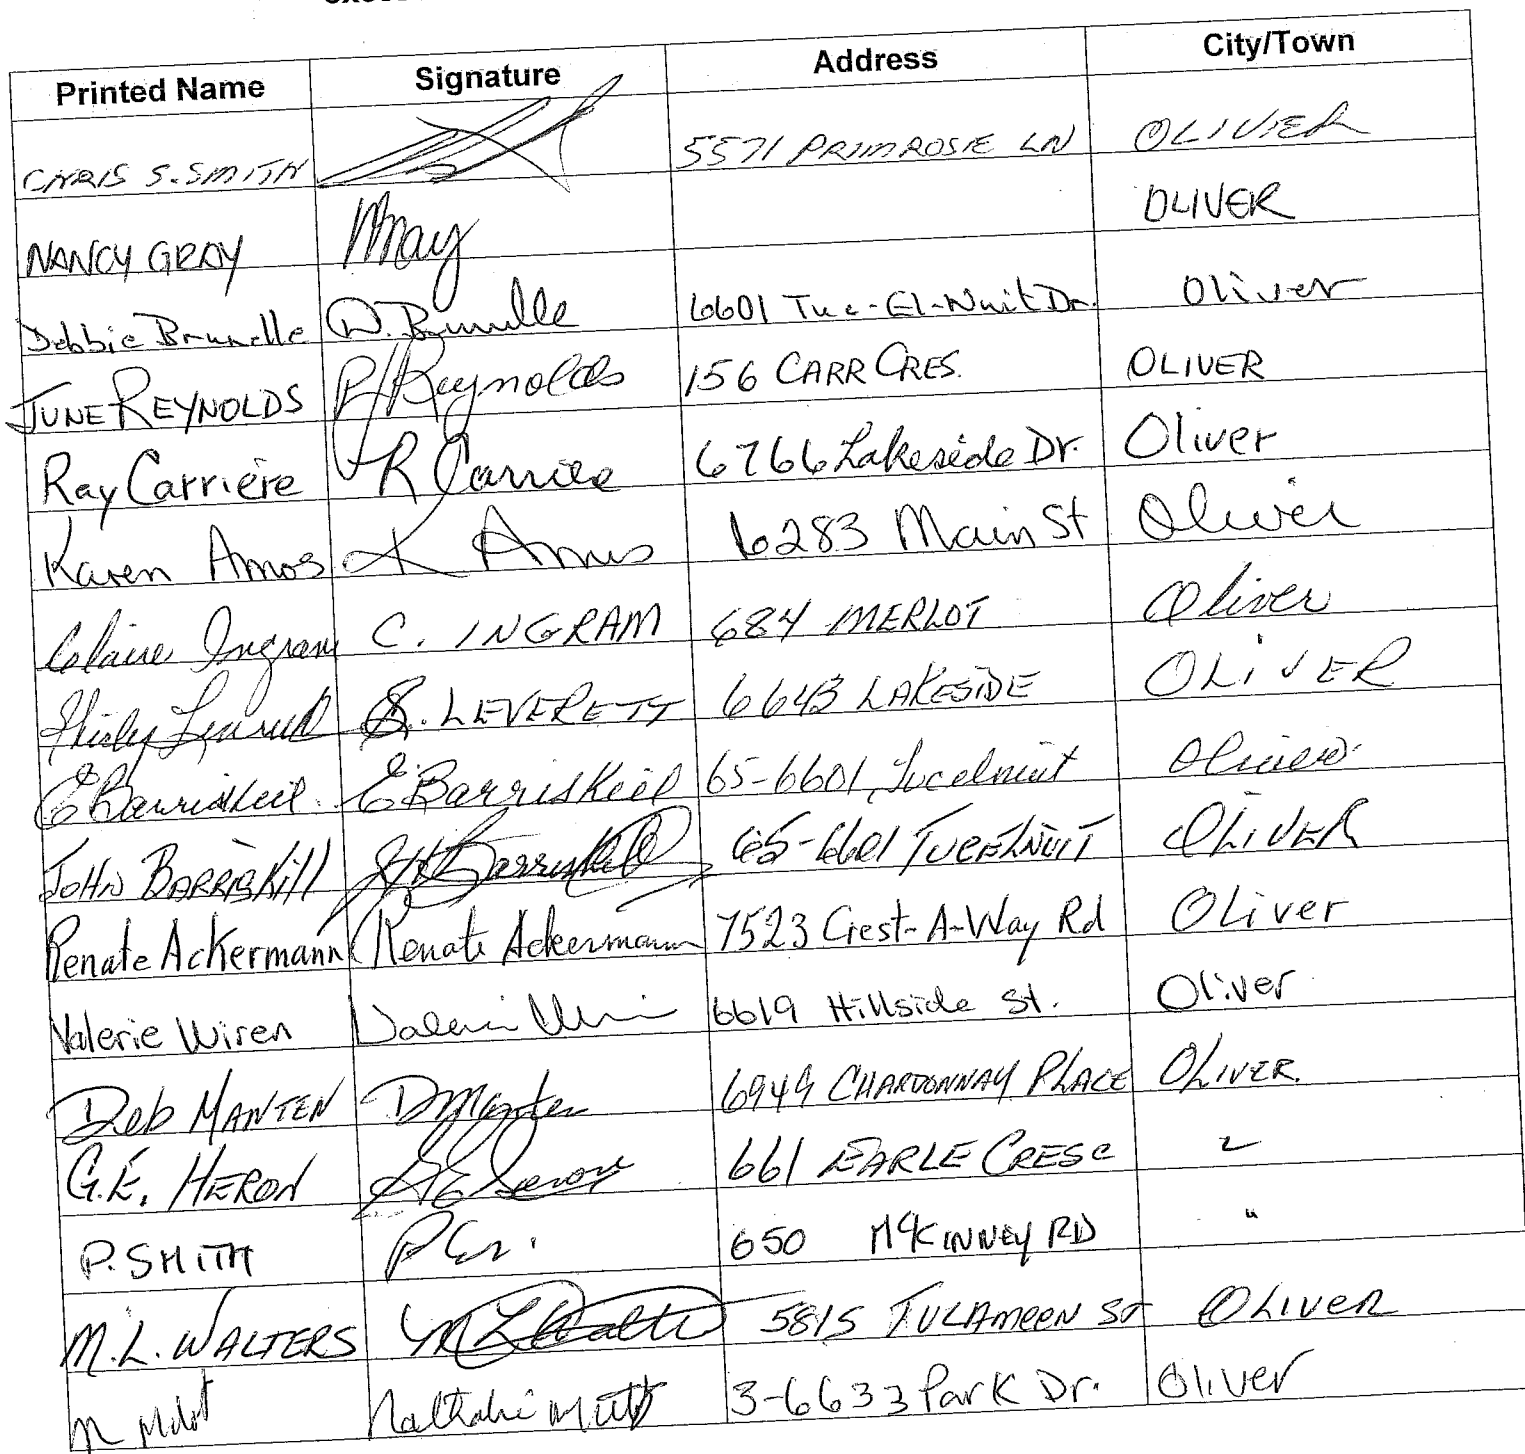 Printed Name Signature Address City/Town
CHRIS S. SMITH 5571 PRIMROSE LN OLIVER
NANCY GRAY OLIVER
Debbie Brunelle D. Brunelle 6601 Tuc-El-Nuit Dr. Oliver
JUNE REYNOLDS Reynolds 156 CARR CRES. OLIVER
Ray Carrière R Carriere 6766 Lakeside Dr. Oliver
Karen Amos K Amos 6283 Main St Oliver
Claire Ingram C. INGRAM 684 MERLOT Oliver
Shirley Leverett S. LEVERETT 6643 LAKESIDE OLIVER
E Barriskill E Barriskill 65-6601 Tucelnuit Oliver
JOHN BARRISKill Barriskill 65-6601 TUCELNUIT OLIVER
Renate Ackermann Renate Ackermann 7523 Crest-A-Way Rd Oliver
Valerie Wiren Valerie Wiren 6619 Hillside St. Oliver
Deb MANTEN D Manten 6949 CHARDONNAY PLACE OLIVER.
G.E. HERON G E Heron 661 EARLE CRESC "
P. SMITH 650 McKINNEY RD "
M.L. WALTERS M L Walters 5815 TULAMEEN ST OLIVER
3-6633 Park Dr. Oliver